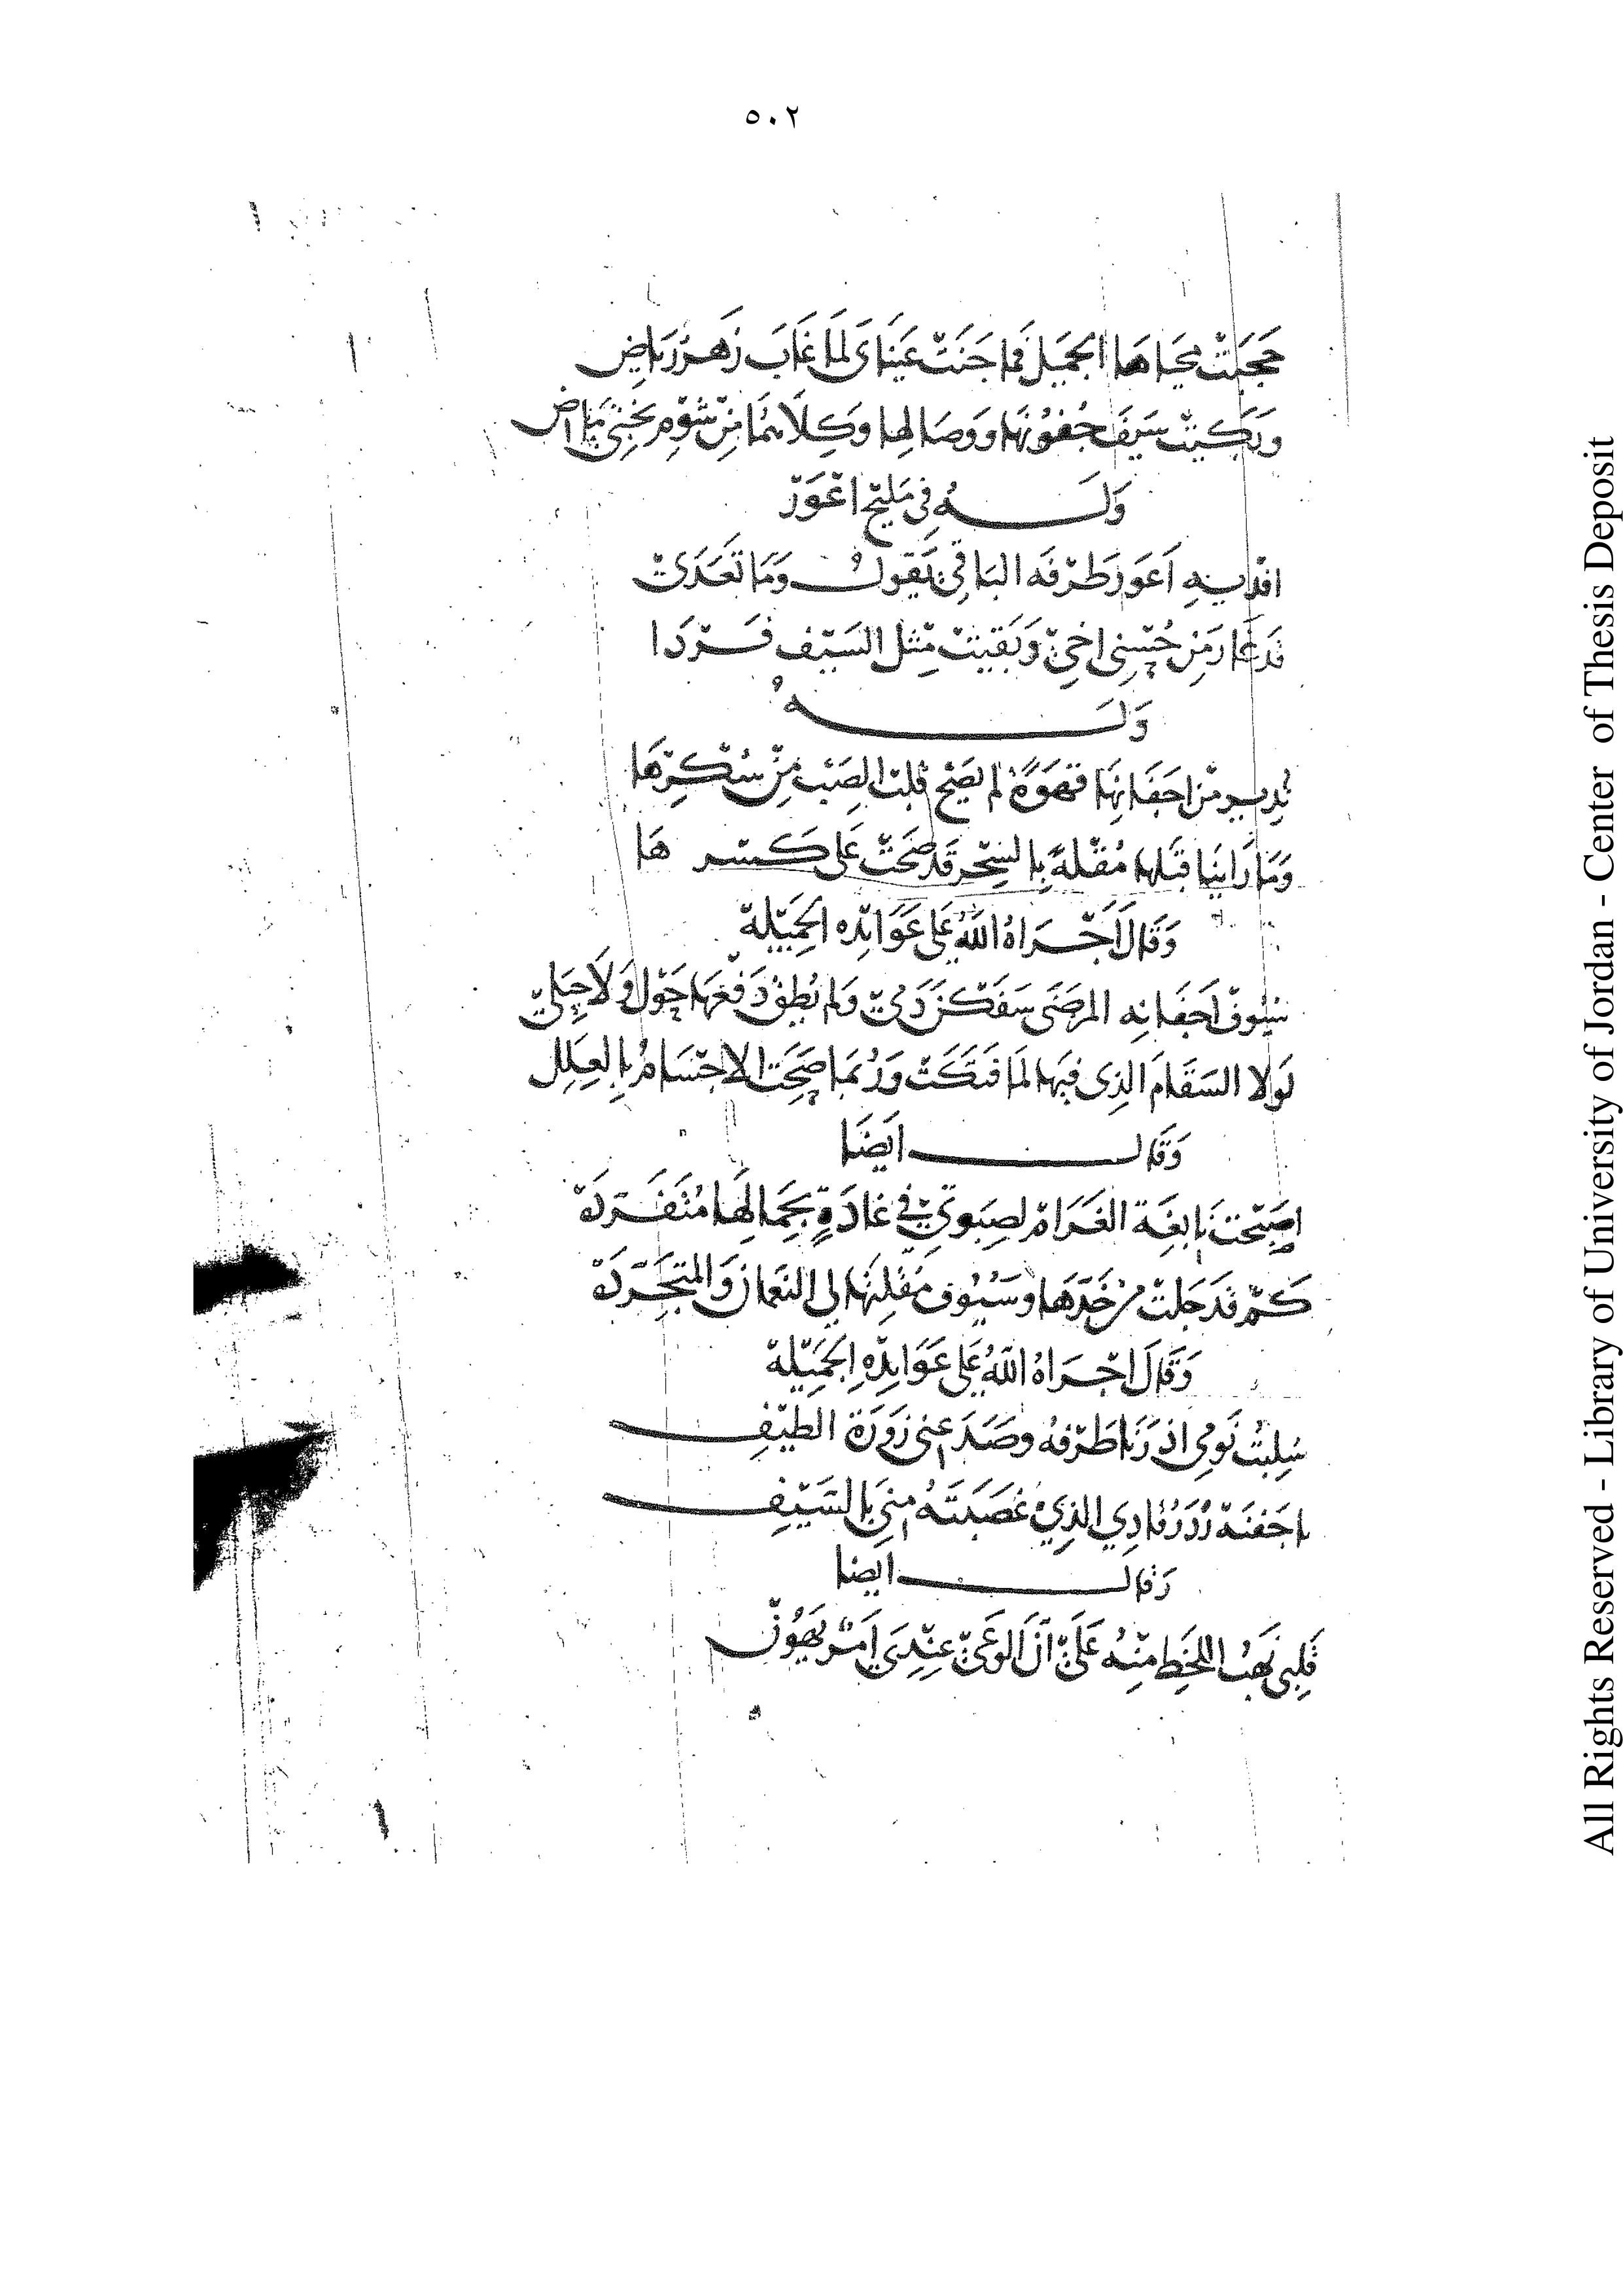 ٥٠٢
حَجَبَتْ مُحَيَاهَا الجَميَل فَما جَنَتْ عَيَنَاىَ لَمَا غَابَ زَهرُ رَيَاضِ
وَبَكيتْ سَيفَ جُفُونَها وَوصَالها وَكِلَاهُمَا مِنْ شؤمِ بَخْتِي مَاضِ
وَلَــهُ فِي مَليْحٍ اعْوَرْ
افْديهِ اَعوَر طَرْفَه البَاقي يَقولُ وَمَا تَعَدَىْ
قَد غَارَ مَنِ حُسْنِى اخِيْ وَبَقيتْ مْثل السَيْف فَرْدَا
وَلَــهُ
تُدِير مْن اجَفَانِهَا قَهوَةً لم يَصْحِ قلبْ الصَبْ مِنْ سُكرِهَا
وَمَا رَاينَا قبَلها مُقْلةً بِالسِحْر قَد صَحَتْ عَلى كَسْر هَا
وَقَالَ اَجْرَاهُ اللَّهُ عَلى عَوَايْدِه الجَمَيْلِة
سُيُوفْ اَجَفانِه المرضَى سَفَكنَ دَمىْ وَلم يُطِقْ دَفْعَهَا حَوْلى وَلَا حِيَلىْ
لَولا السَقَامَ الذِى فيهَا لَما فَتَكَتْ وَرُبَمَا صَحَتِ الاجْسَامُ بِالعِلَلِ
وَقَالــ ايَضَا
اصَبْحتُ نَابغَة الغَرَامْ لصِبَوتيْ فِي غَادَةٍ بجَمَالَهَا مُتَفَردَهْ
كَمْ قَد جَلتْ مِنْ خَدِهَا وسُيُوف مُقْلَتهَا لى النَعمَان وَالمتَجَرِدَهْ
وَقَالَ اجْرَاهُ اللَّهُ عَلى عَوَايدِهِ الجَميْلِة
سُلِبتُ نَومِى اذ رَنَا طَرْفهُ وصَدَ عنى زَورَة الطيْفِ
يا جَفنَهْ رُدَ رُقَادِي الذِيْ غصَبتَهُ مِنى بِالسَيْفِ
وَقالــ ايضا
قَلبِى نَهبُ اللحَظِ مِنْهُ عَلَىْ اَنَ الوَعىْ عِنْدِي اَمْرٌ يَهُونْ
All Rights Reserved - Library of University of Jordan - Center of Thesis Deposit